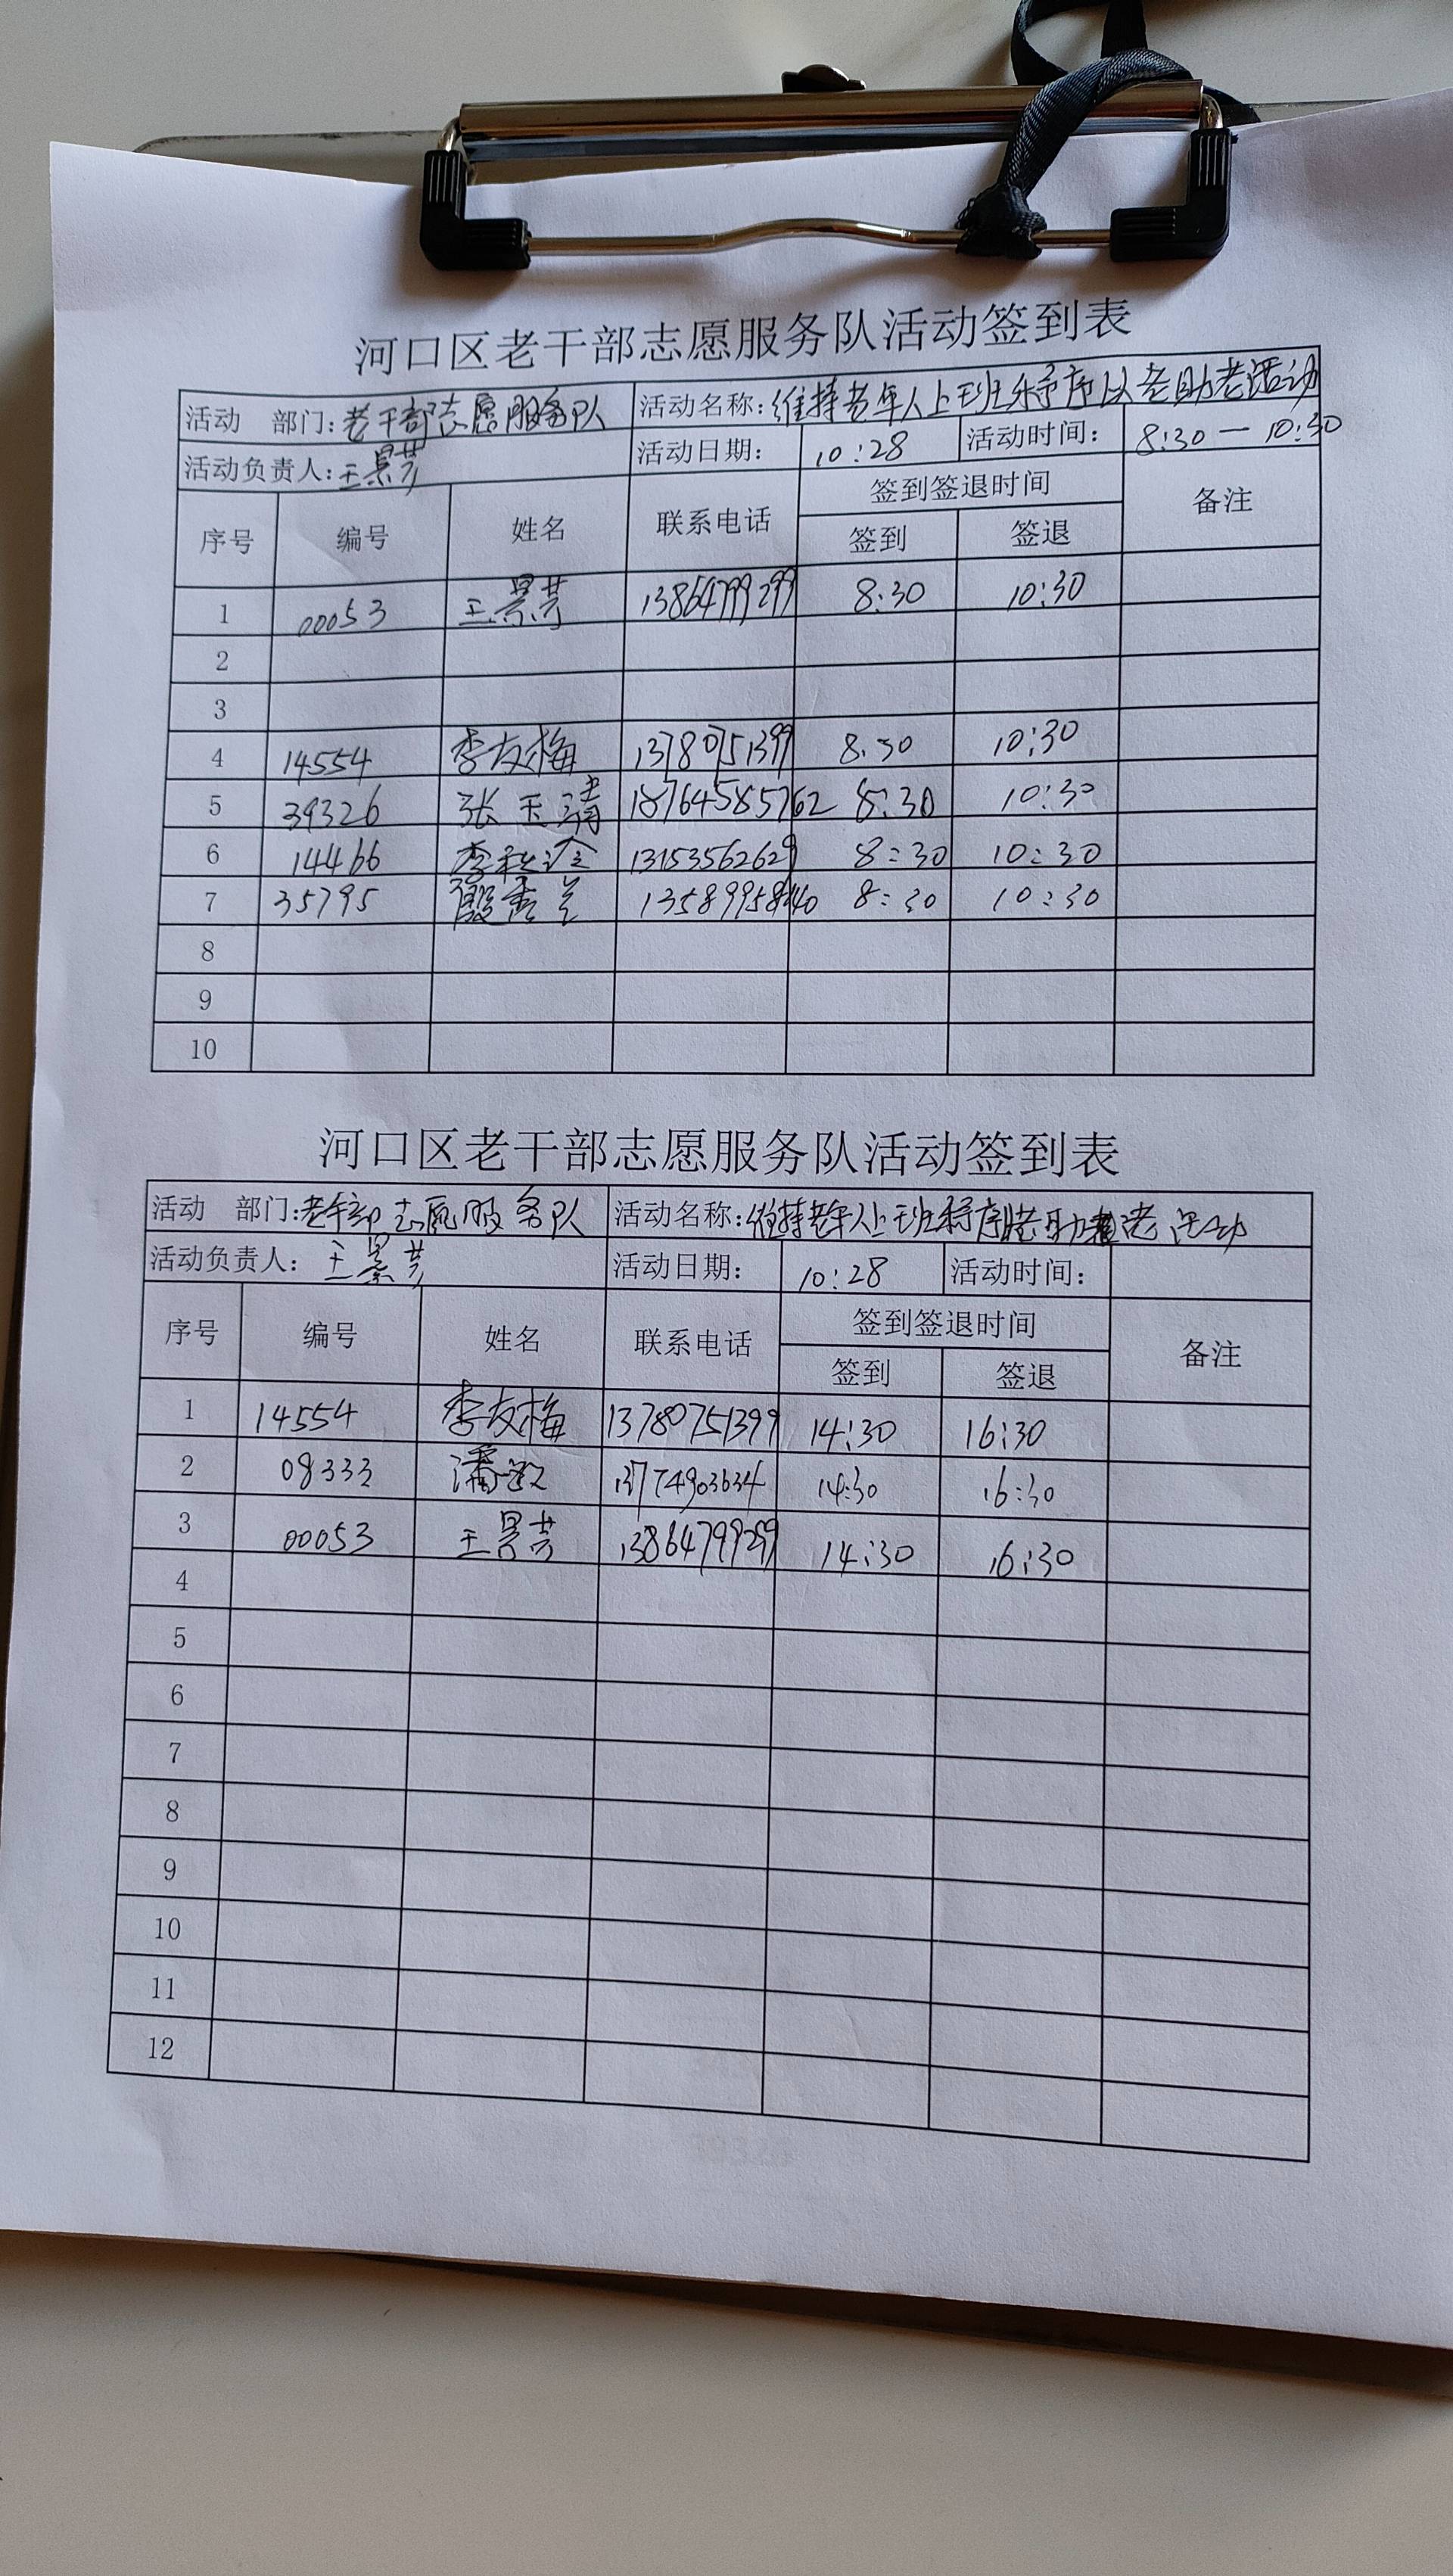 河口区老干部志愿服务队活动签到表
活动 部门:老干部志愿服务队 活动名称:维持老年人上班秩序以老助老活动
活动负责人:王景芳 活动日期: 10:28 活动时间: 8:30—10:30
序号 编号 姓名 联系电话 签到签退时间 备注
签到 签退
1 00053 王景芳 13864799299 8:30 10:30
2
3
4 14554 李友梅 13780751399 8:30 10:30
5 39326 张玉清 18764585762 8:30 10:30
6 14466 李 13153562629 8:30 10:30
7 35795 殷秀兰 13589958440 8:30 10:30
8
9
10
河口区老干部志愿服务队活动签到表
活动 部门:老干部志愿服务队 活动名称:维持老年人上班秩序 助老活动
活动负责人: 王景芳 活动日期: 10:28 活动时间:
序号 编号 姓名 联系电话 签到签退时间 备注
签到 签退
1 14554 李友梅 13780751399 14:30 16:30
2 08333 潘 14:30 16:30
3 00053 王景芳 13864799299 14:30 16:30
4
5
6
7
8
9
10
11
12